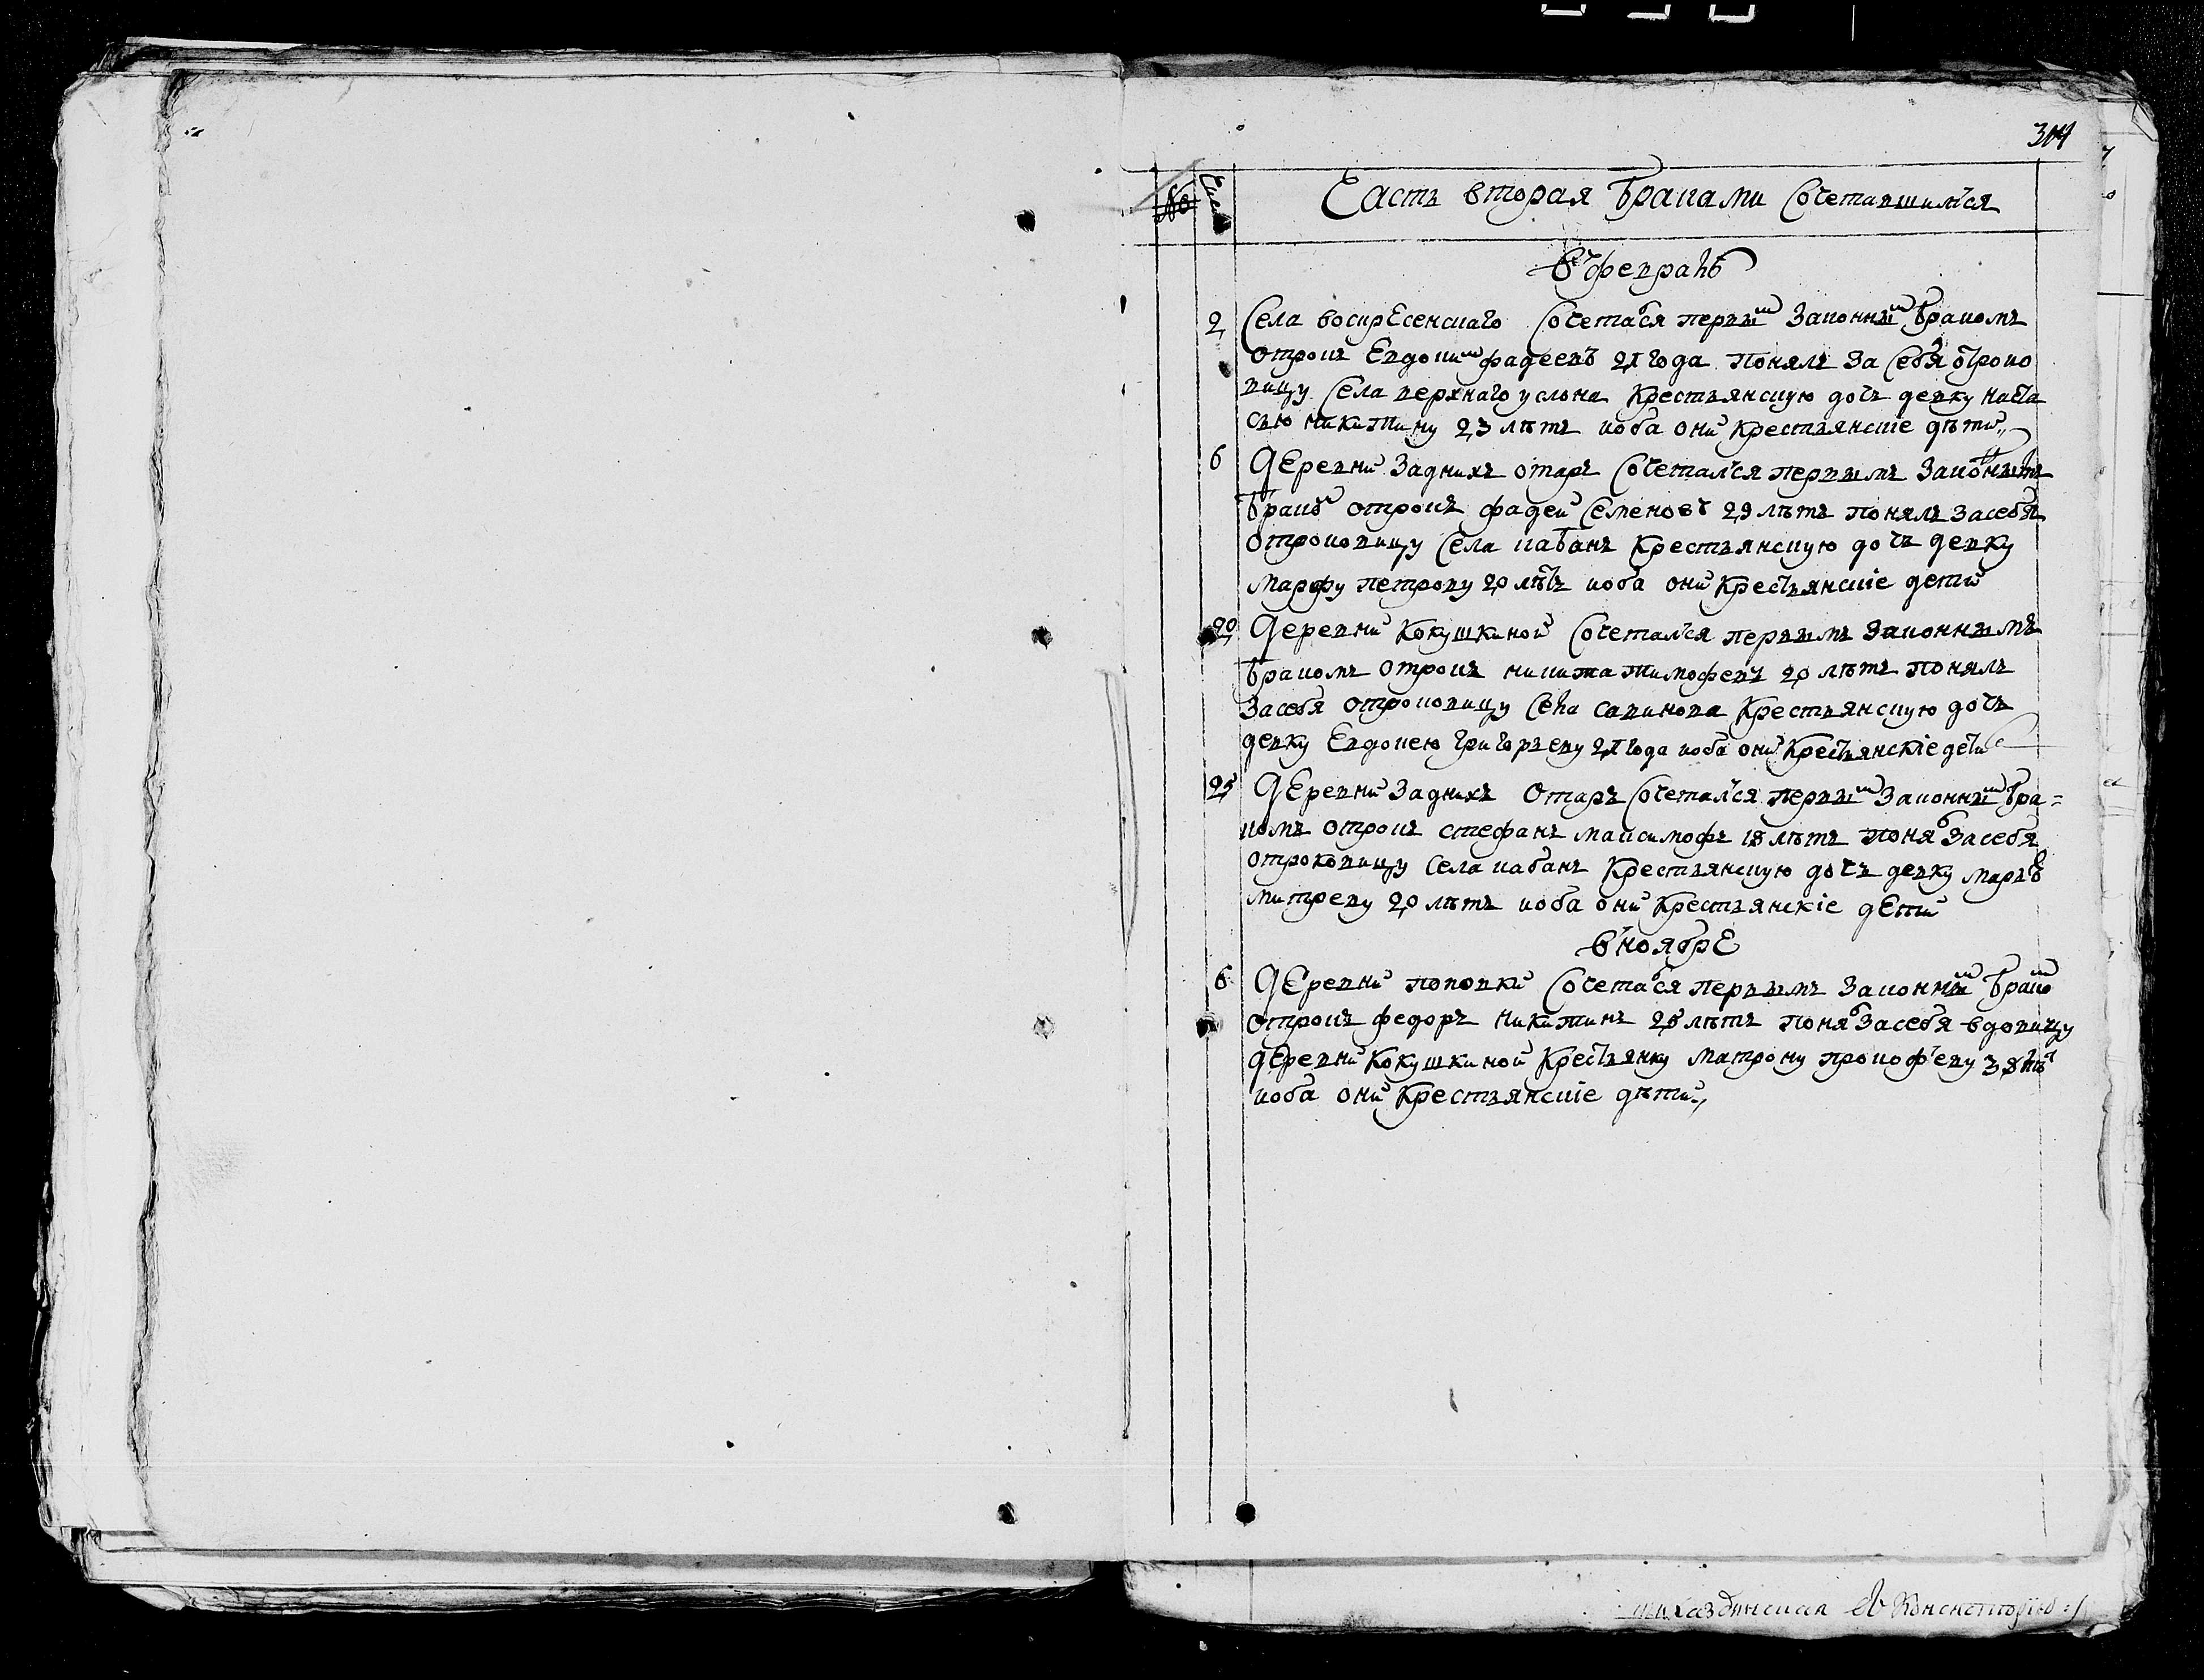 № Числ Часть вторая браками Сочетавшимся
В феврале
2 Села воскресенскаго Сочетался первым законным браком
отрок Евдоким фадеевъ 21 года понялъ за себя отроко
вицу Села верхнаго услона крестьянскую дочь девку наста
сью никитину 23 летъ и оба они крестьянские дети
6 Деревни Задних отаръ Сочетался первымъ законнымъ
браком отрокъ фадей Семеновъ 29 летъ понялъ за себя
отроковицу Села кабанъ крестьянскую дочь девку
марфу петрову 20 летъ и оба они крестьянские дети
20 Деревни кокушкиной Сочетался первымъ законнымъ
браком отрокъ никита тимофевъ 20 летъ понялъ
за себя отроковицу Села савинова крестьянскую дочь
девку Евдокею григорьеву 21 года и оба они крестьянские дети
25 Деревни Задних Отаръ Сочетался первым законным бра=
комъ отрокъ стефанъ максимофъ 18 летъ понял за себя
отроковицу Села кабанъ крестьянскую дочь девку марью
митреву 20 летъ и оба они крестьянские дети
В ноябре
6 Деревни поповки Сочетался первымъ законным браком
отрокъ федоръ никитинъ 25 летъ понял за себя вдовицу
деревни кокушкиной крестьянку матрону прокофеву 38 лет
и оба они крестьянские дети
Казанская в Консисторию